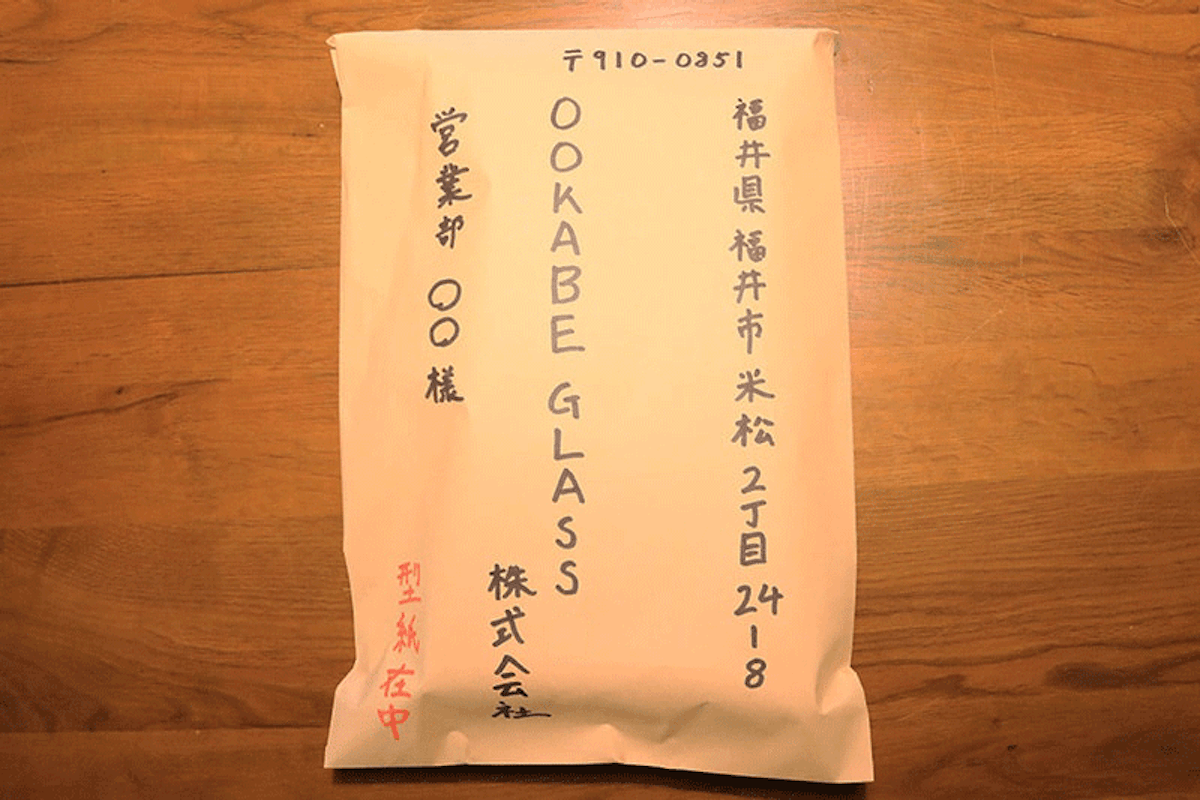 〒910-0851
福井県福井市米松2丁目24-8
OOKABE GLASS
株式会社
営業部 〇〇様
型紙在中